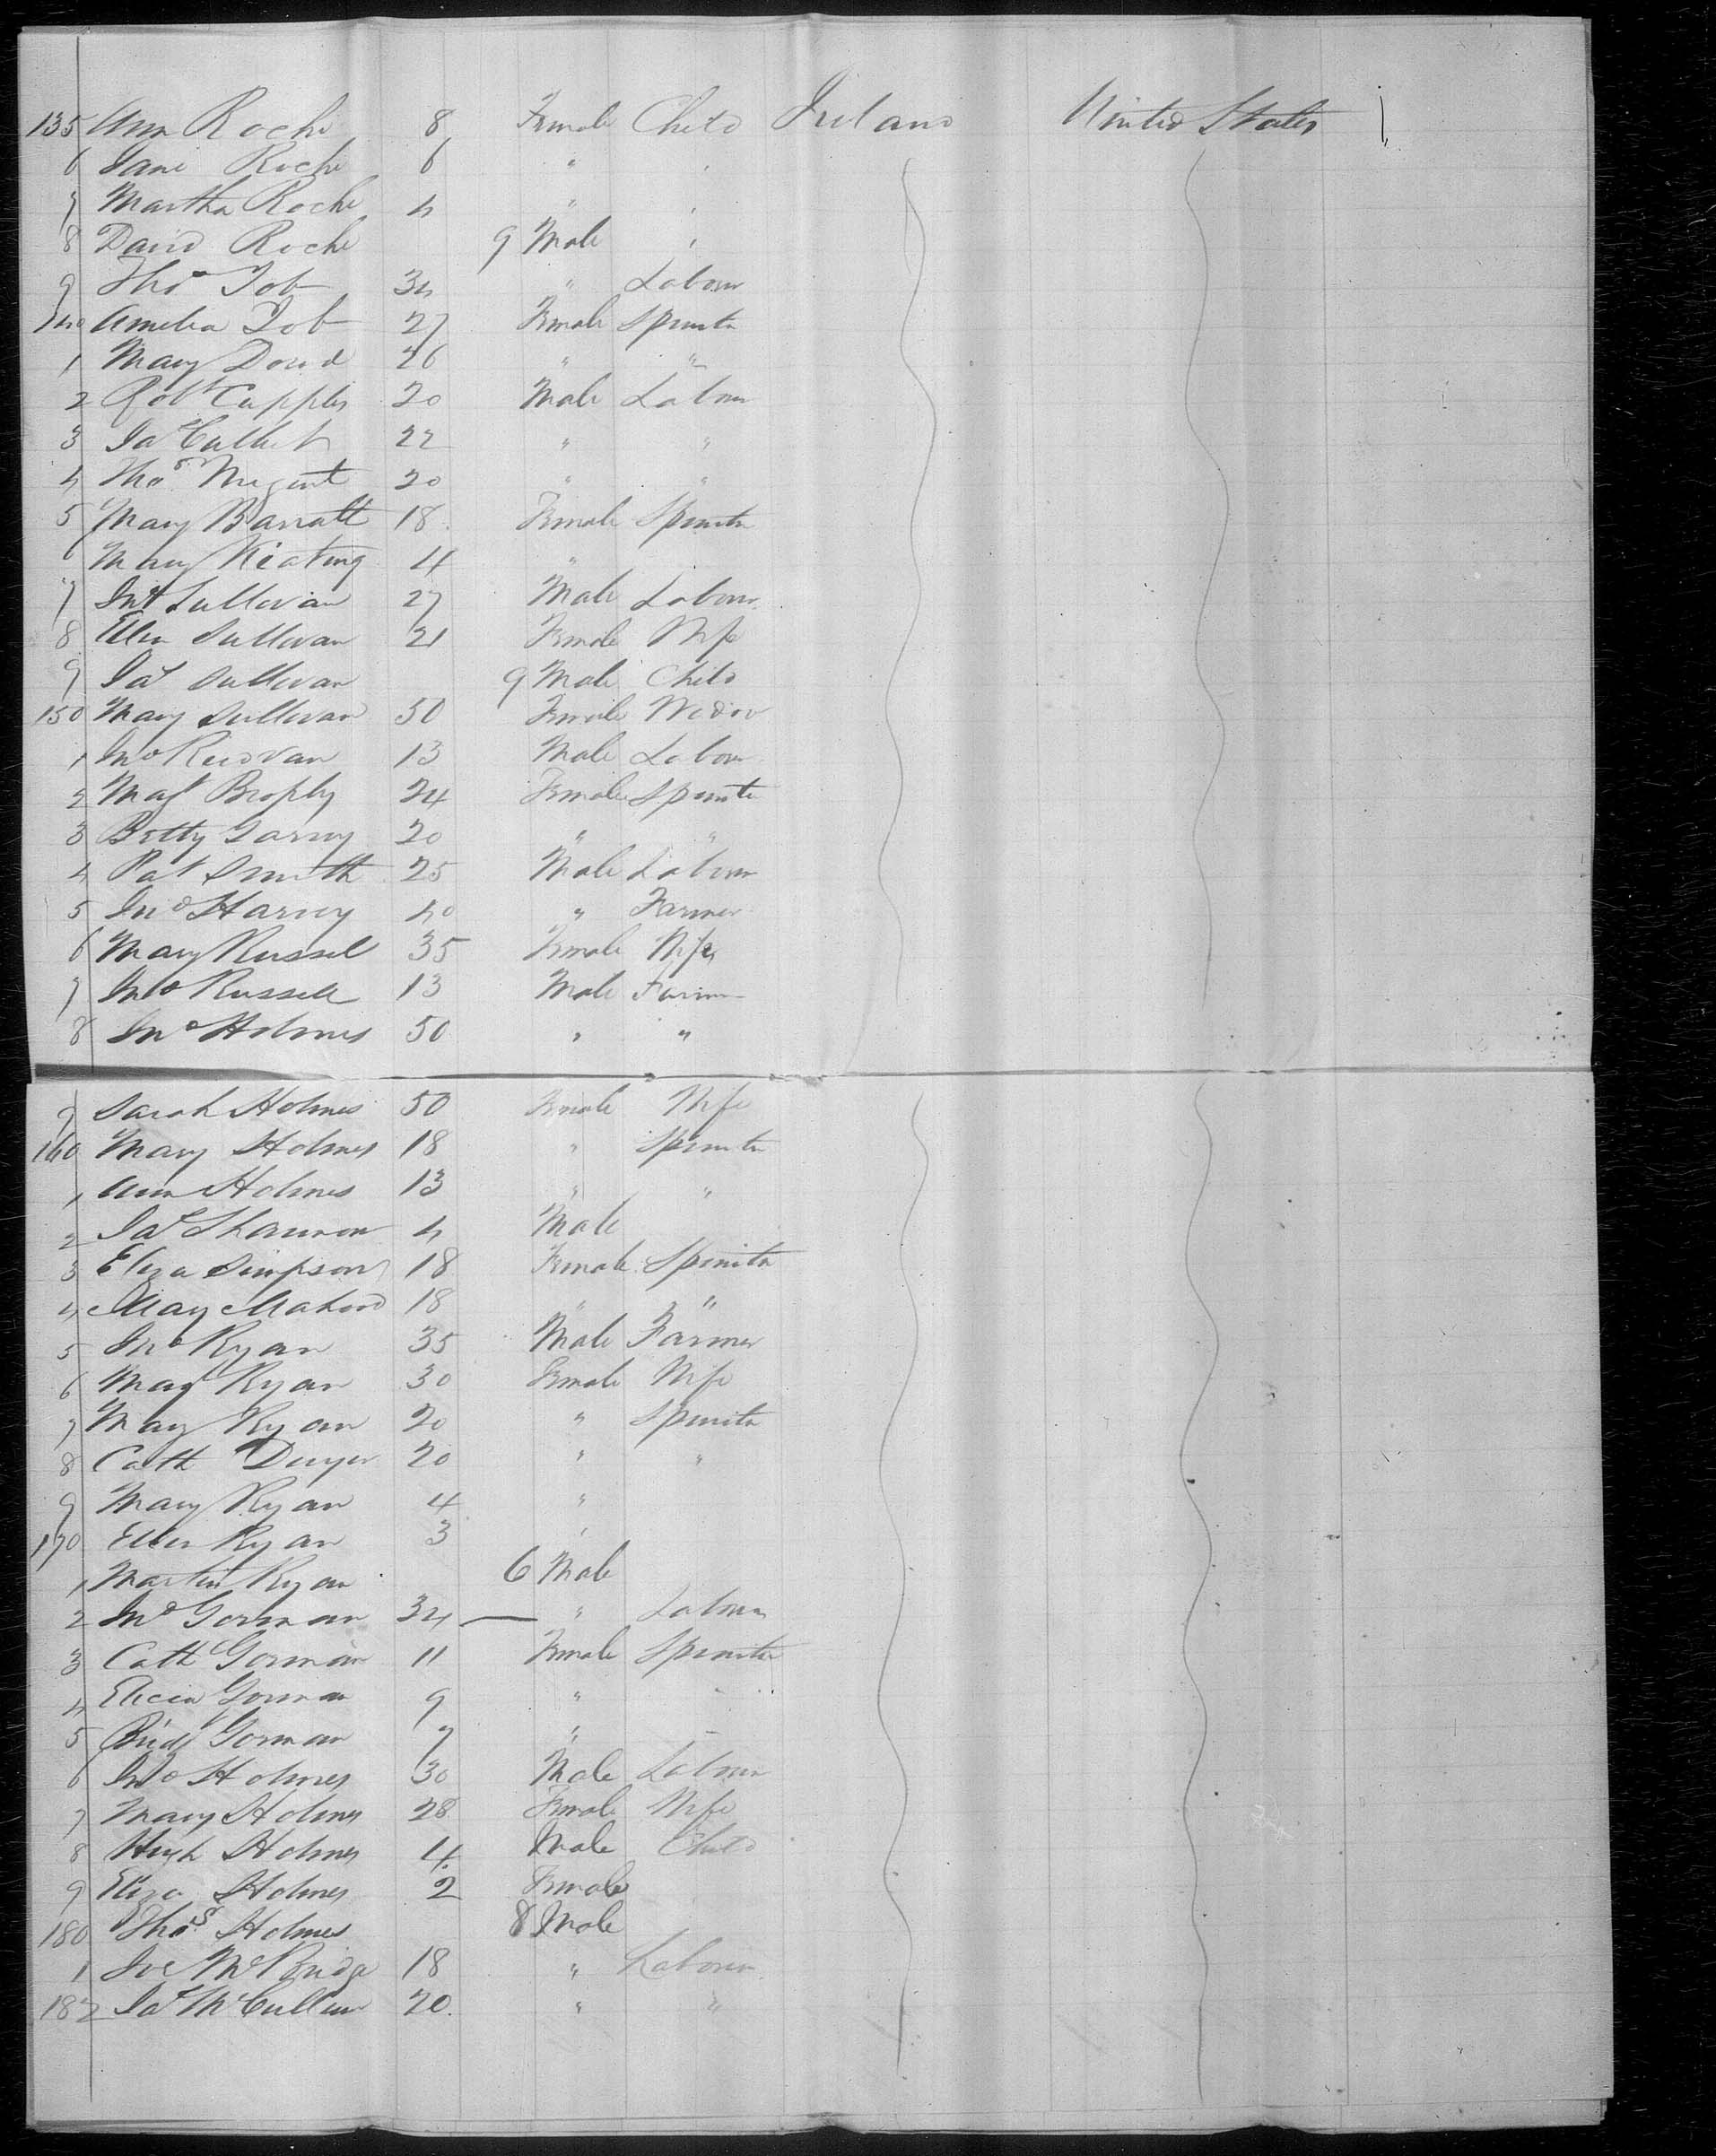 135 Ann Roche 8 Female Child Ireland United States
6 Jane Roche 6 " "
7 Martha Roche 4 " "
8 David Roche 9 Male "
9 Thos Tob 34 " Labour
140 Amelia Tob 27 Female Spinster
1 Mary Dowd 26 " "
2 Robt Cupples 20 Male Labour
3 Jas 22 " "
4 Thos Nugent 20 " "
5 Mary Barratt 18 Female Spinster
6 Mary Keating 4 "
7 Sullivan 27 Male Labour
8 Ellen Sullivan 21 Female Wife
9 Jas Sullivan 9 Male Child
150 Mary Sullivan 50 Female Widow
1 Jno 13 Male Labour
2 Magt Brophy 24 Female Spinster
3 Betty Garvey 20 " "
4 Pat Smith 25 Male Labour
5 Jno Harvey 40 " Farmer
6 Mary Russel 35 Female Wife
7 Jno Russell 13 Male Farmer
8 Jno Holmes 50 " "
9 Sarah Holmes 50 Female Wife
160 Mary Holmes 18 " Spinster
1 Ann Holmes 13 " "
2 Jas Shannon 4 Male
3 Eliza Simpson 18 Female Spinster
4 May 18 " "
5 Jno Ryan 35 Male Farmer
6 Mary Ryan 30 Female Wife
7 Mary Ryan 20 " Spinster
8 Cath Dwyer 20 " "
9 Mary Ryan 4 "
170 Ellen Ryan 3 "
1 Martin Ryan 6 Male
2 Jno Gorman 34 — " Labour
3 Cath Gorman 11 Female Spinster
4 Elicia Gorman 9 " "
5 Bridt Gorman 7 " "
6 Jno Holmes 30 Male Labour
7 Mary Holmes 28 Female Wife
8 Hugh Holmes 4 Male Child
9 Eliza Holmes 2 Female
180 Thos Holmes 8 Male
1 McBride 18 " Labour
182 Jas McCullum 20 " "